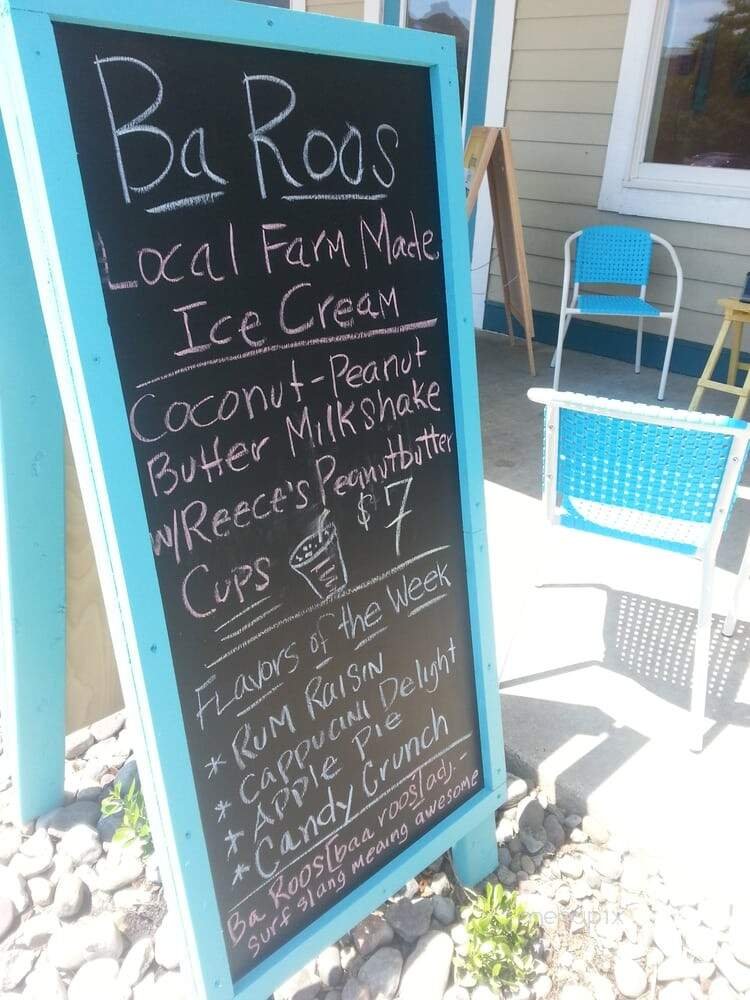 Ba Roos
Local Farm Made
Ice Cream
Coconut-Peanut
Butter Milkshake
w/Reece's Peanutbutter
Cups $7
Flavors of the Week
* Rum Raisin
* Cappucini Delight
* Apple Pie
* Candy Crunch
Ba Roos [baa roos] adj. -
surf slang meaing awesome
menupix